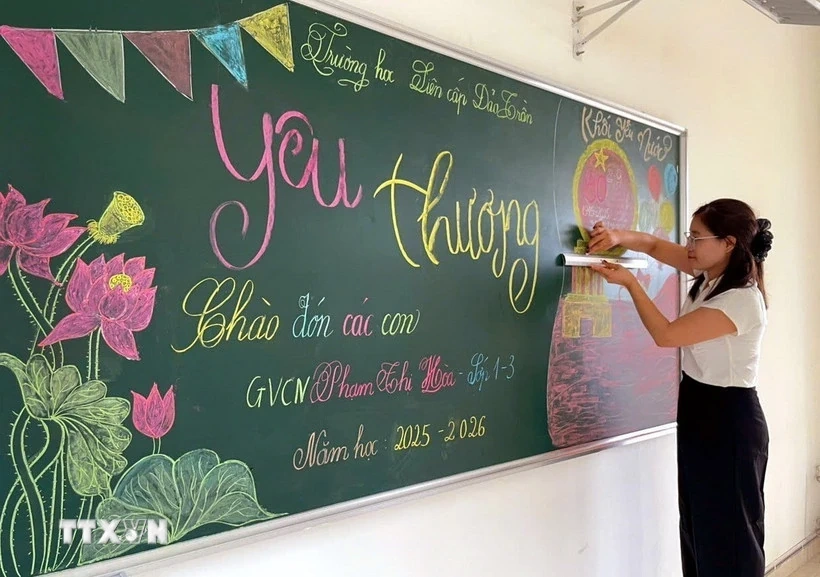 Trường học Liên cấp Đào Trần
Khối Yêu Nước
Yêu thương
Chào đón các con
GVCN Phạm Thị Hòa - Lớp 1-3
Năm học : 2025 - 2026
TTXVN